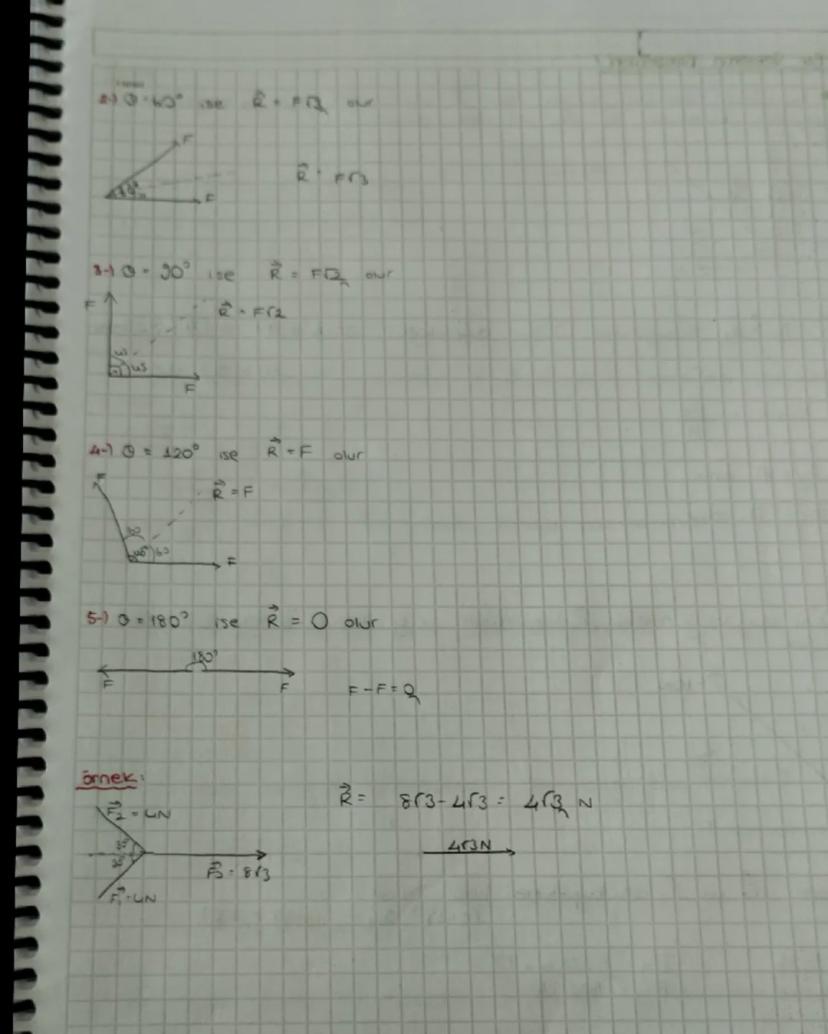 2-) θ = 60° ise R⃗ = F√3 olur
F
60°
F
R⃗ = F√3
3-) θ = 90° ise R⃗ = F√2 olur
F
R⃗ = F√2
45
45
F
4-) θ = 120° ise R⃗ = F olur
F
R⃗ = F
60
60
F
5-) θ = 180° ise R⃗ = 0 olur
180°
F
F
F - F = 0
örnek:
R⃗ = 8√3 - 4√3 = 4√3 N
F⃗2 = 4N
4√3N
30
30
F⃗3 = 8√3
F⃗1 = 4N